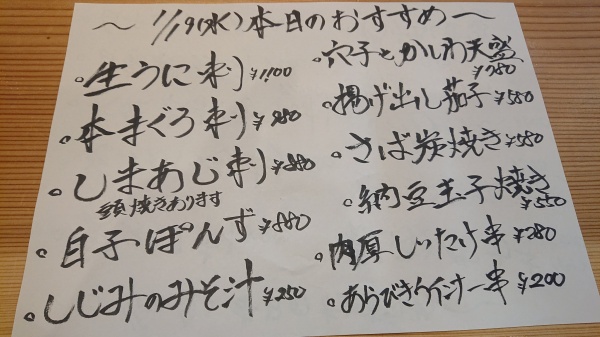 ～ 1/19(水)本日のおすすめ～
。生うに刺 ¥1,100
。本まぐろ刺 ¥980
。しまあじ刺 ¥880
頭焼きあります
。白子ぽんず ¥880
。しじみのみそ汁 ¥250
。穴子とかしわ天盛 ¥980
。揚げ出し茄子 ¥550
。さば炭焼き ¥550
。納豆玉子焼き ¥550
。肉厚しいたけ串 ¥280
。あらびきウインナー串 ¥200